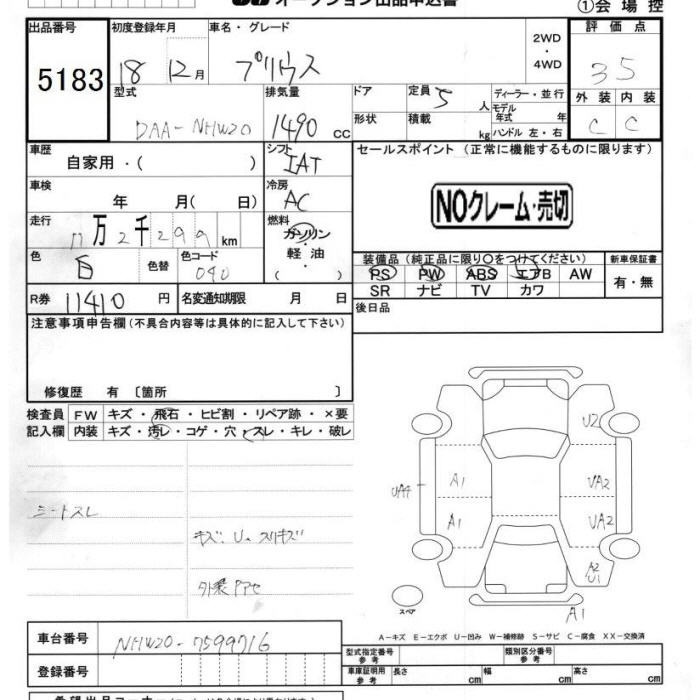 オークション出品申込書
①会場控
出品番号 初度登録年月 車名・グレード 2WD ・ 4WD 評価点
5183 18 12月 プリウス 35
型式 排気量 ドア 定員 5 人 ディーラー・並行 外装 内装
DAA-NHW20 1490 cc 形状 積載 kg モデル年式 年 C C
ハンドル 左・右
車歴 シフト セールスポイント (正常に機能するものに限ります)
自家用・( ) IAT
車検 冷房
年 月( 日) AC NOクレーム・売切
走行 11万2千299km 燃料 ガソリン・軽油
色 白 色替 色コード 040
装備品(純正品に限り○をつけてください) 新車保証書
PS PW ABS エアB AW 有・無
SR ナビ TV カワ
R券 11410円 名変通知期限 月 日
後日品
注意事項申告欄(不具合内容等は具体的に記入して下さい)
修復歴 有 〔箇所 〕
検査員 FW キズ・飛石・ヒビ割・リペア跡・×要
記入欄 内装 キズ・汚レ・コゲ・穴・スレ・キレ・破レ
シートスレ
キズ・U・スリキズ
外装アセ
U2
A1 UA2
UA4
A1 UA2
A2
U1
スペア
A1
A-キズ E-エクボ U-凹み W-補修跡 S-サビ C-腐食 XX-交換済
車台番号 NHW20-7599716
登録番号
型式指定番号 参考 類別区分番号 参考
車庫証明用 参考 長さ cm 幅 cm 高さ cm